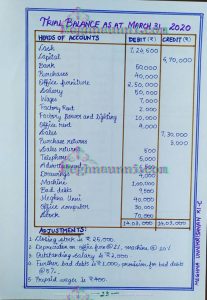 TRIAL BALANCE AS AT MARCH 31, 2020
HEADS OF ACCOUNTS DEBIT (₹) CREDIT (₹)
Cash 7,24,500
Capital 6,70,000
Bank 50,000
Purchases 40,000
Office furniture 2,50,000
Salary 50,000
Wages 7,000
Factory Rent 2,000
Factory Power and Lighting 10,000
Office rent 4,000
Sales 7,30,000
Purchase returns 3,000
Sales returns 500
Telephone 5,000
Advertisement
Drawings 4,000
Machine 1,00,000
Bad debts 9,500
Meghna Unni 40,000
Office computer 30,000
Stock 70,000
14,03,000 14,03,000
ADJUSTMENTS:
1. Closing stock is ₹ 25,000.
2. Depreciation on office
3. Outstanding salary is
4. Further, bad debts is ₹ 1,000, provision for bad debts
5. Prepaid wages is ₹ 400.
- 23 -